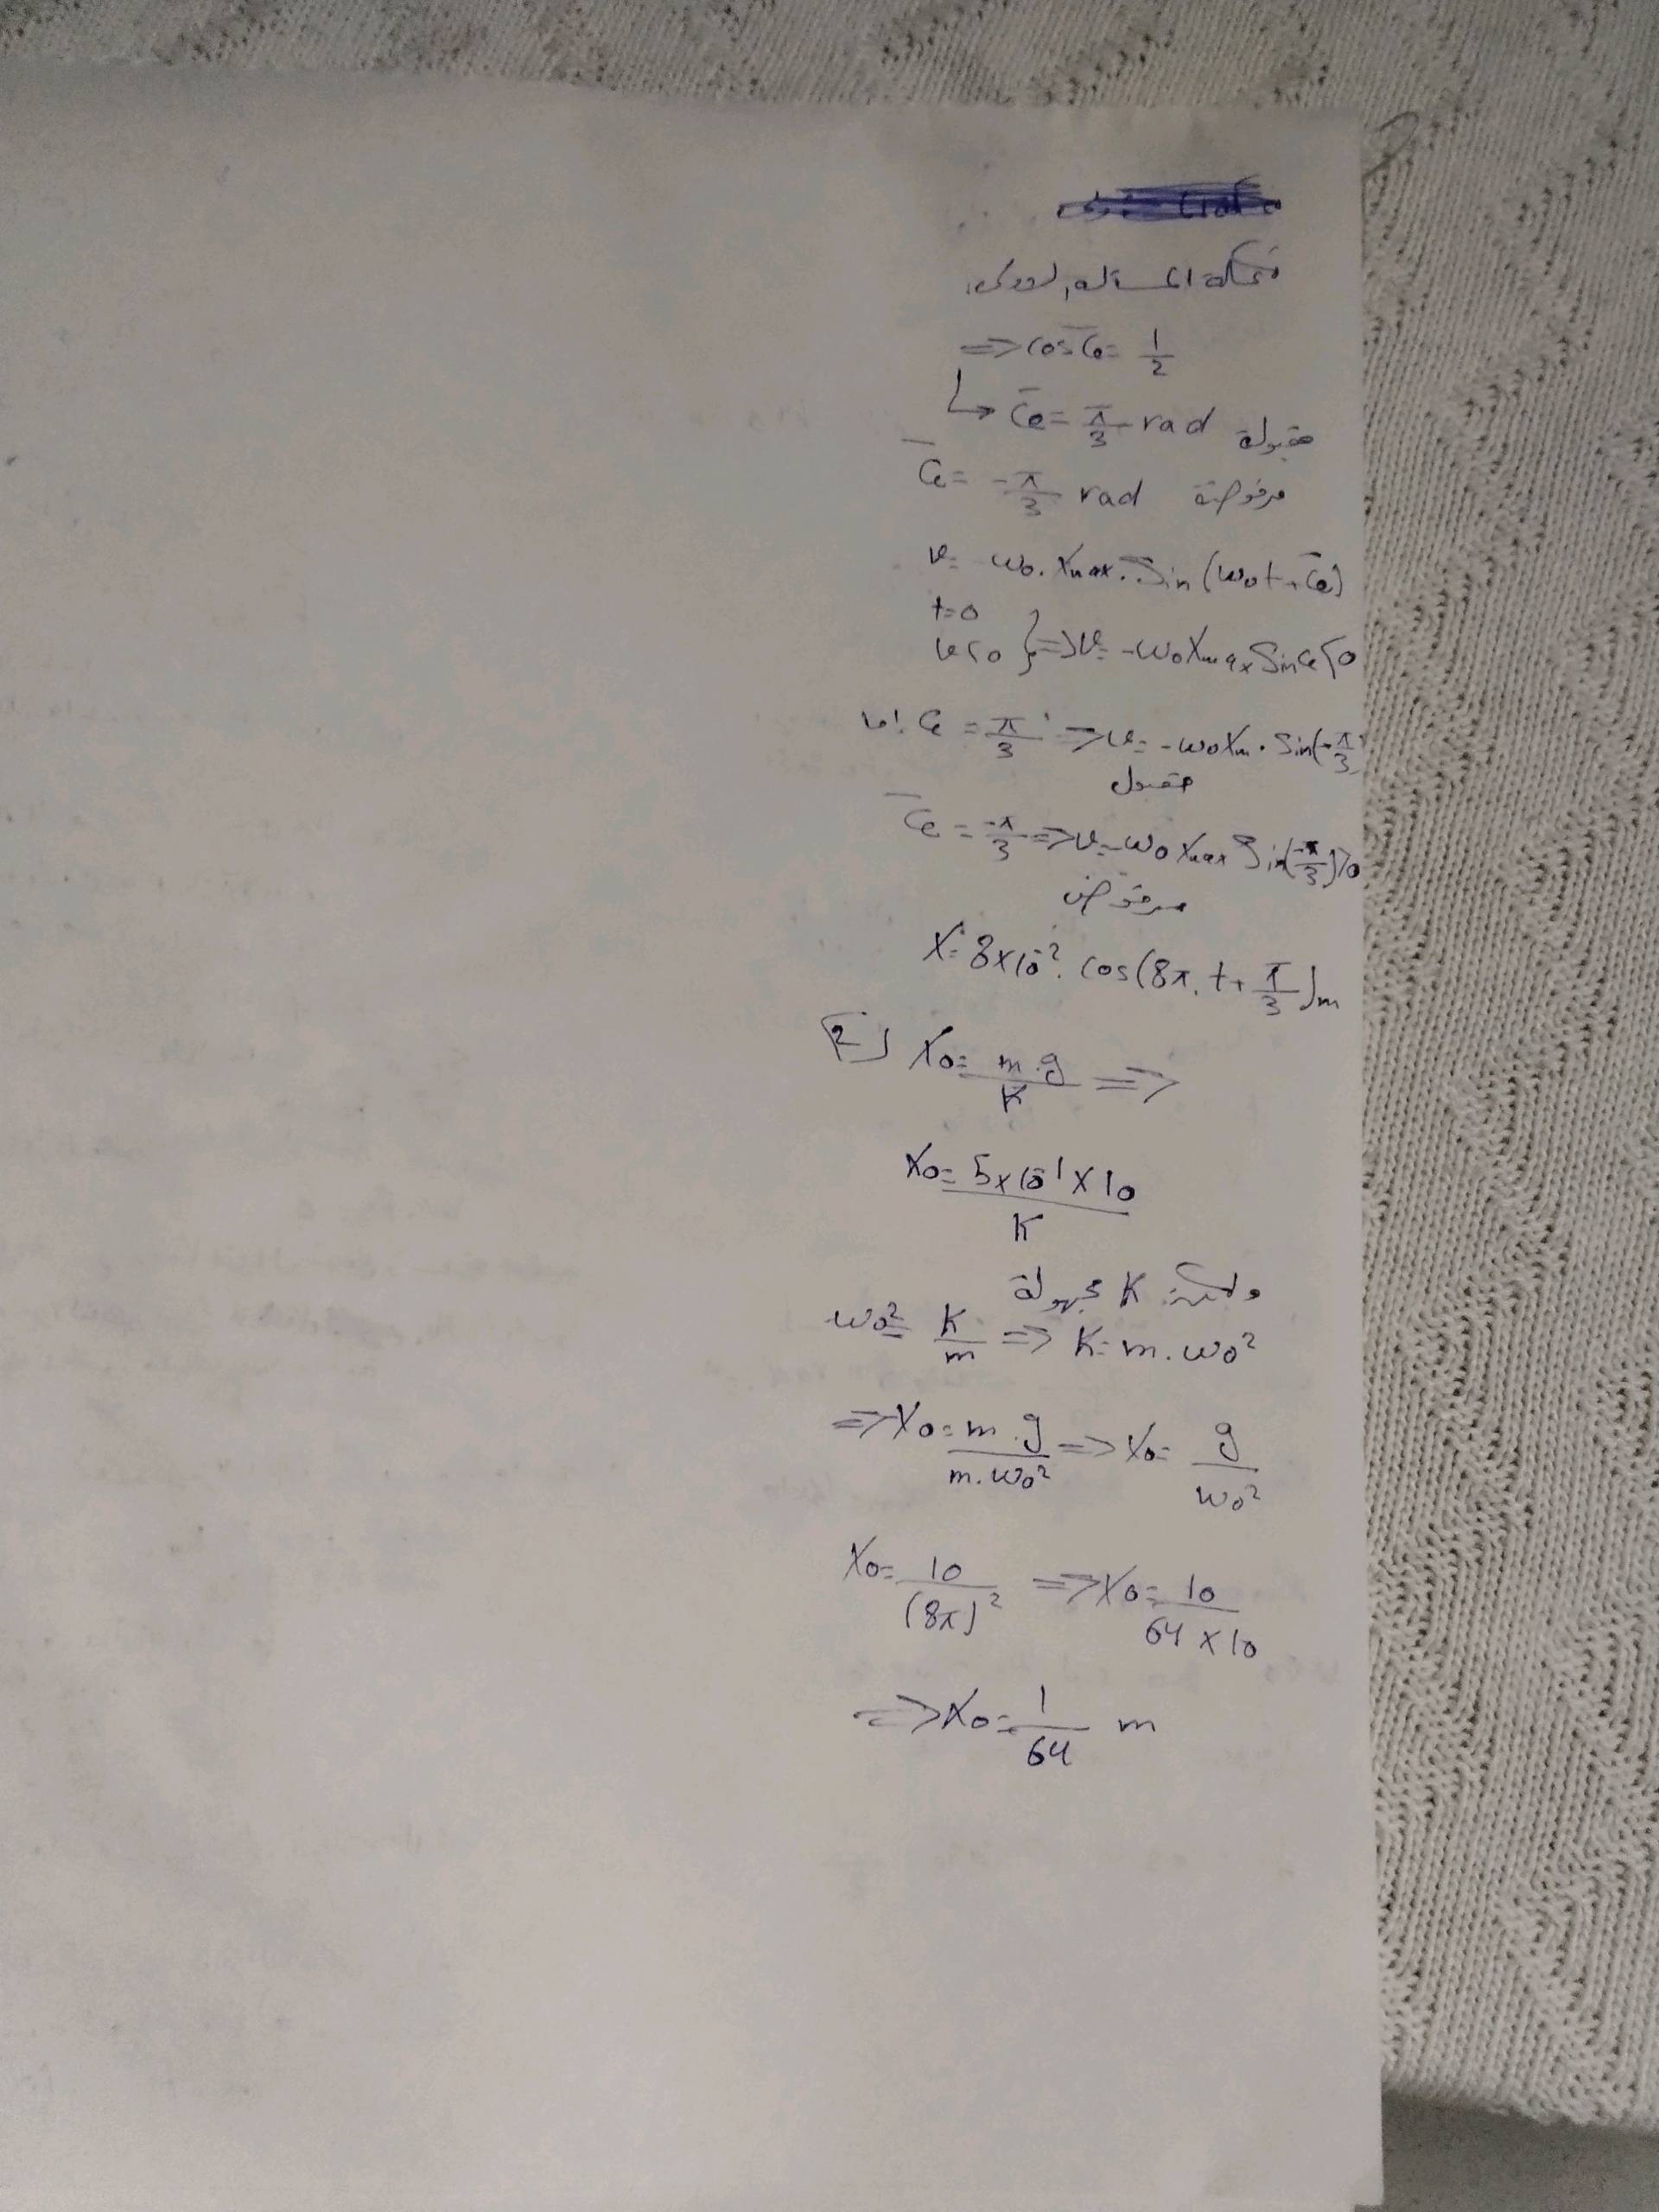 تكملة المسألة الأولى:
⇒ cos φ̄ = 1/2
↳ φ̄ = π/3 rad مقبولة
φ̄ = -π/3 rad مرفوضة
v = ω0. Xmax. Sin (ω0 t + φ̄)
t=0
v<0 } ⇒ v = -ω0 Xmax Sin φ < 0
إما φ = π/3 ⇒ v = -ω0 Xm. Sin(-π/3)
مقبول
φ̄ = -π/3 ⇒ v = -ω0 Xmax Sin(-π/3) > 0
مرفوض
X = 8×10⁻². cos(8π. t + π/3) m
2] X0 = m.g/K ⇒
X0 = 5×10⁻¹ × 10/K
ولكن: K مجهولة
ω0² = K/m ⇒ K = m.ω0²
⇒ X0 = m.g/m.ω0² ⇒ X0 = g/ω0²
X0 = 10/(8π)² ⇒ X0 = 10/64 × 10
⇒ X0 = 1/64 m